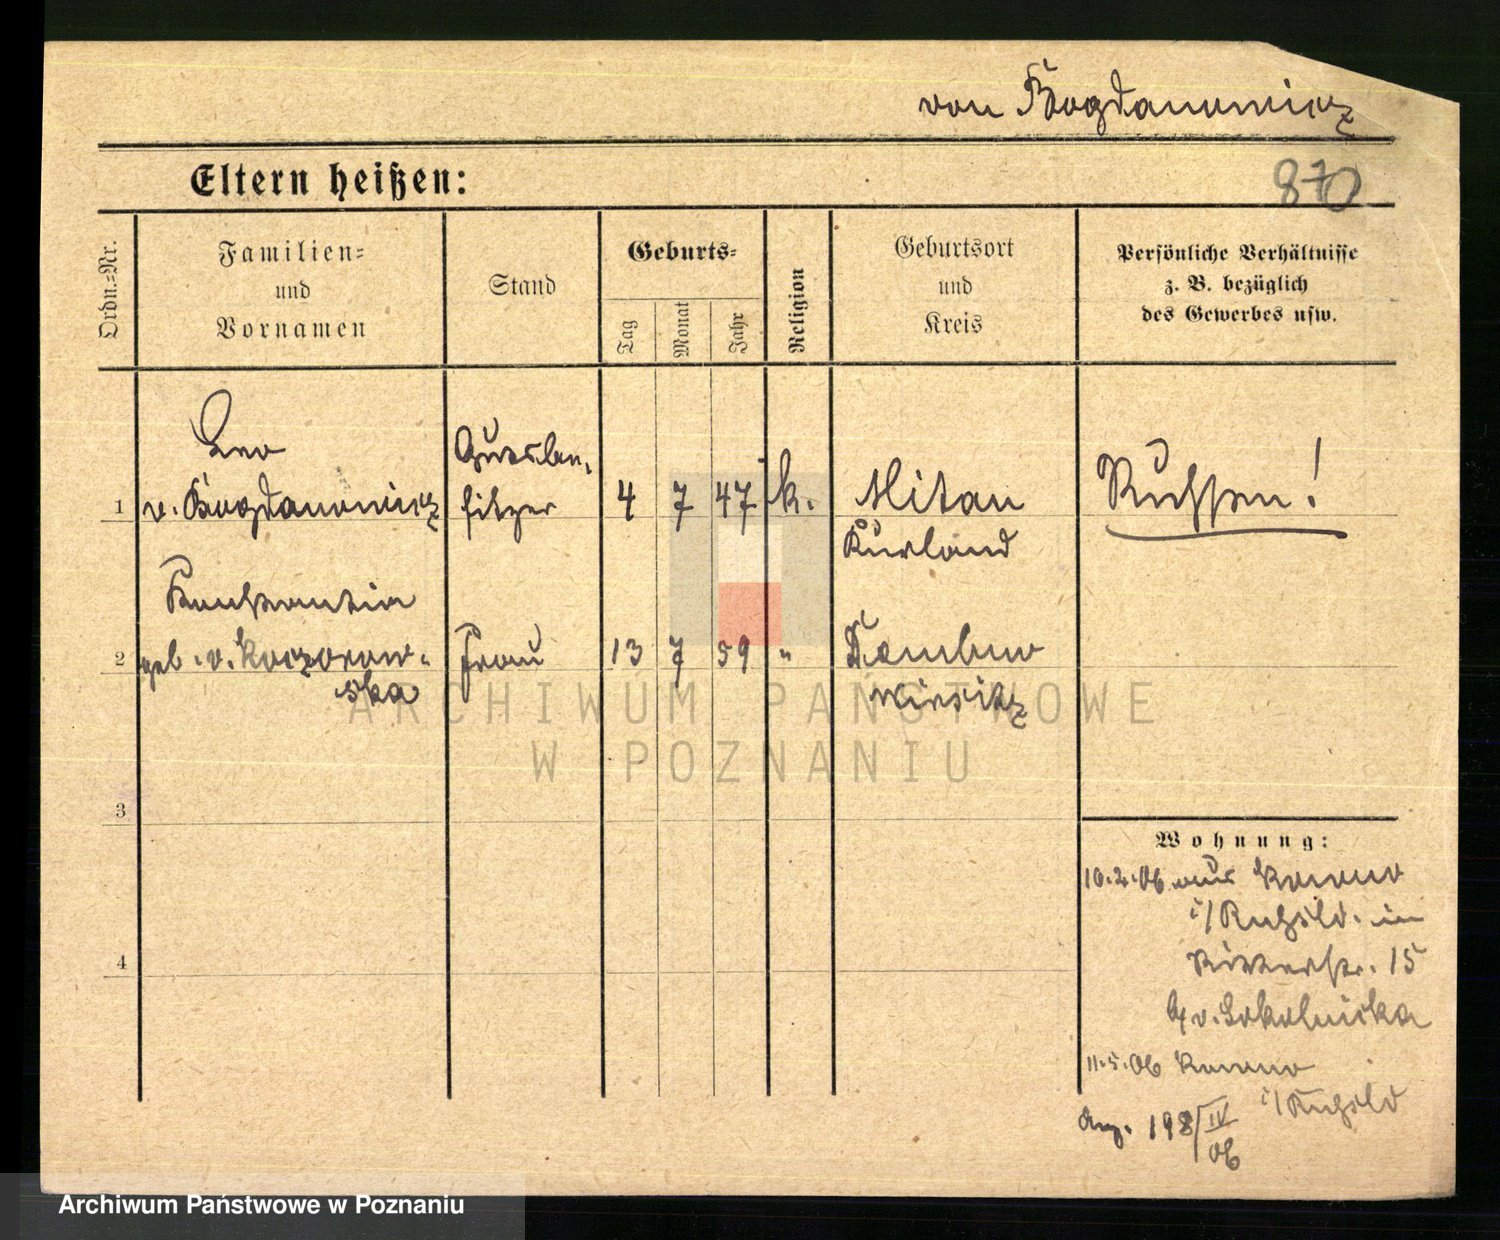 von Bogdanowicz
Eltern heißen:
870
Ordn.-Nr.
Familien-
und
Vornamen
Stand
Geburts-
Tag
Monat
Jahr
Religion
Geburtsort
und
Kreis
Persönliche Verhältnisse
z. B. bezüglich
des Gewerbes usw.
Leo
Gutsbe-
1 v. Bogdanowicz sitzer 4 7 47 k. Mitau Russen!
Kurland
Konstantia
2 geb. v. Koczorow- Frau 13 7 59 " Dembno
ska Wirsitz
ARCHIWUM PAŃSTWOWE
W POZNANIU
3
Wohnung:
10.2.06 aus Kowno
i/Rußld. in
4 Ritterstr. 15
b/ v. Sokolnicka
11.5.06 Kowno
i/Rußld
Ang. 198/IV
06
Archiwum Państwowe w Poznaniu